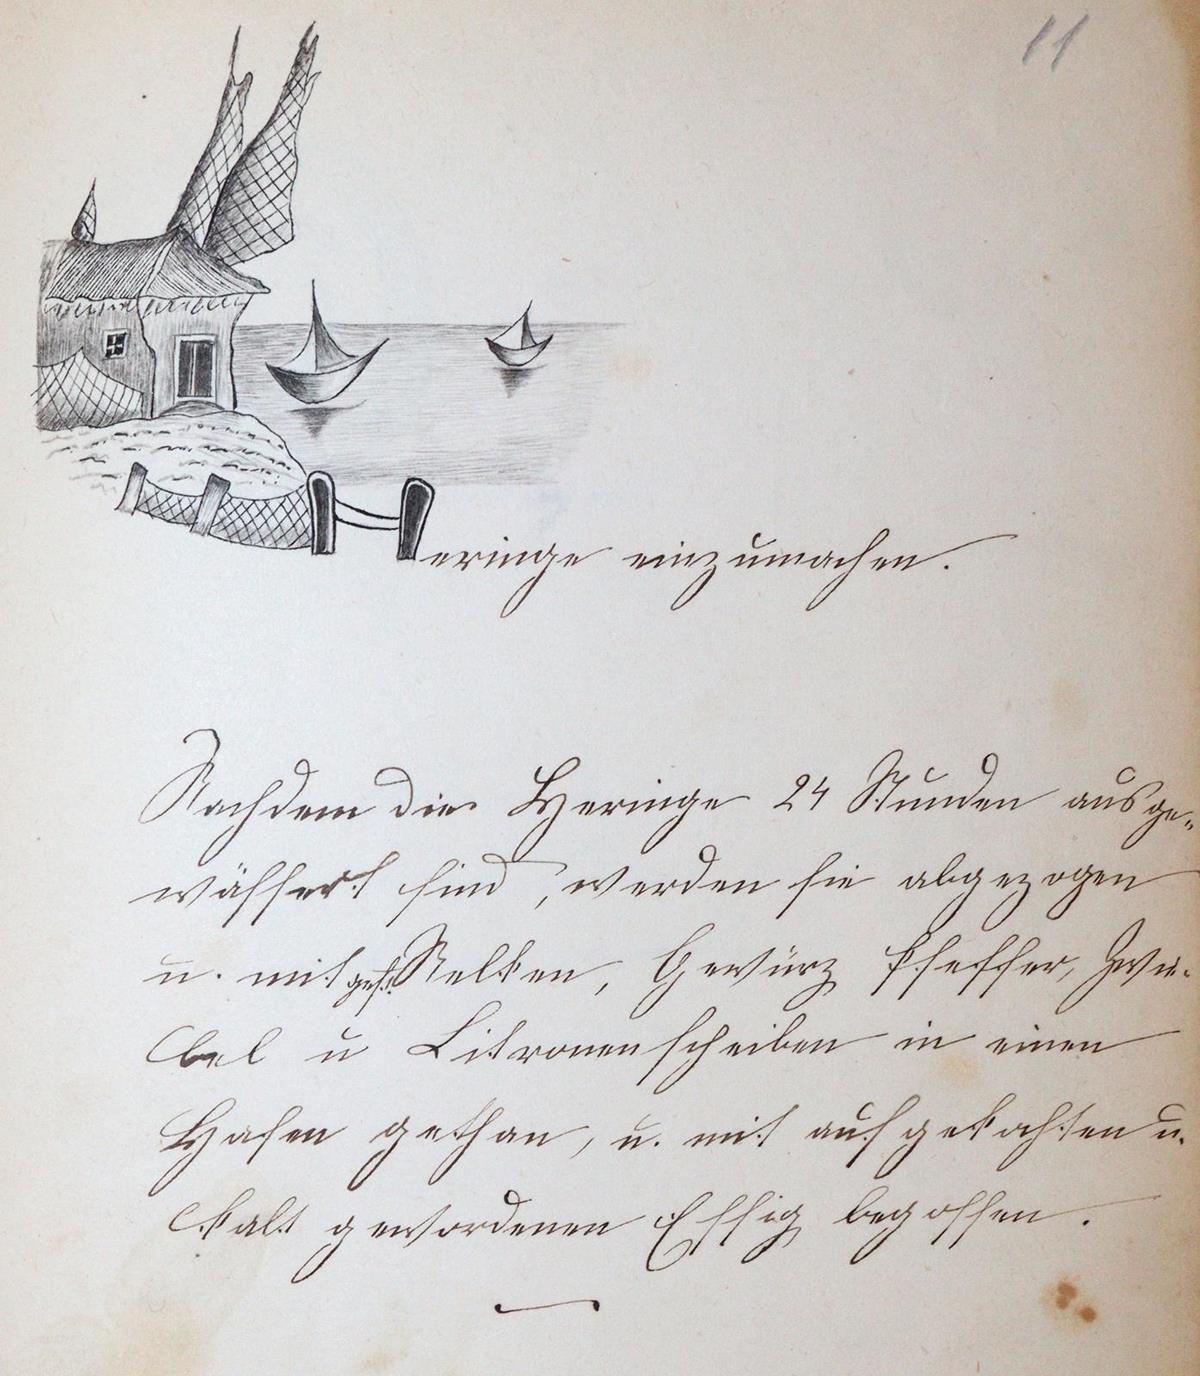 11
Heringe einzumachen.
Nachdem die Heringe 24 Stunden ausge-
wässert sind, werden sie abgezogen
u. mit gest. Nelken, Gewürz Pfeffer, Zwie-
bel u Citronenscheiben in einen
Hafen gethan, u. mit aufgekochten u.
kalt gewordenen Essig begossen.